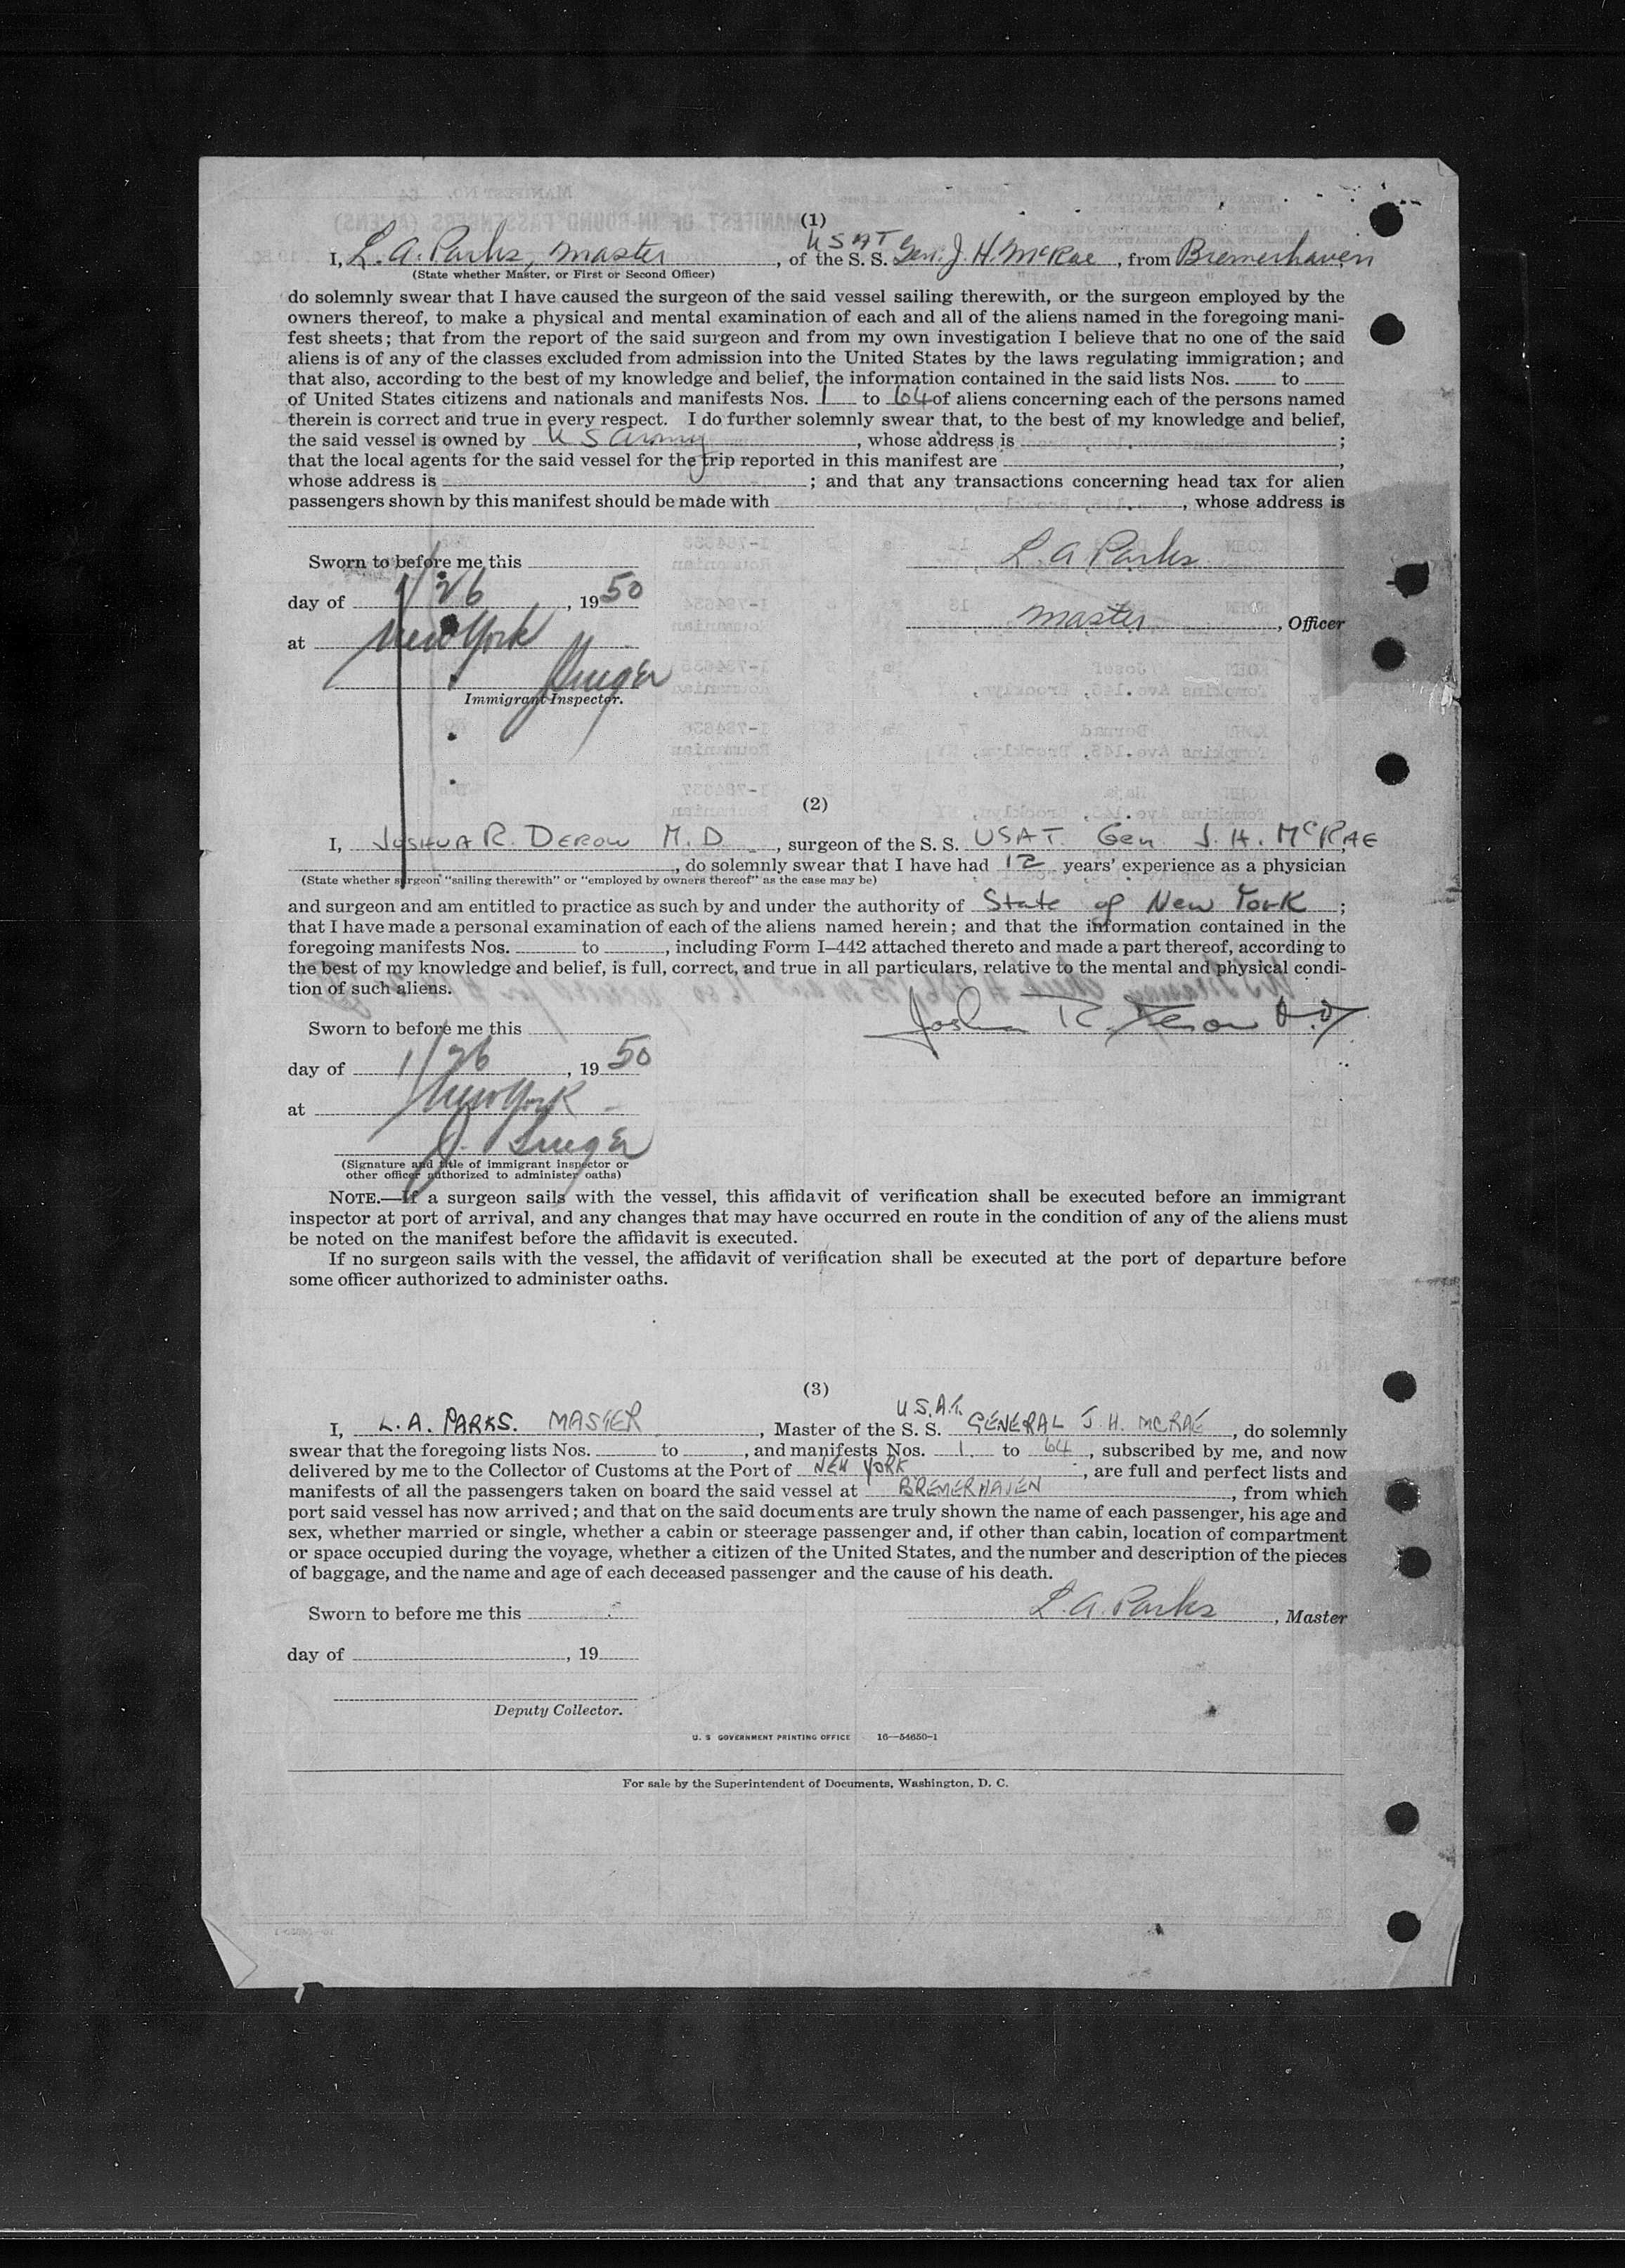 (1)
U S A T
I, L. A. Parks, Master, of the S. S. Gen. J. H. McRae, from Bremerhaven
(State whether Master, or First or Second Officer)
do solemnly swear that I have caused the surgeon of the said vessel sailing therewith, or the surgeon employed by the
owners thereof, to make a physical and mental examination of each and all of the aliens named in the foregoing mani-
fest sheets; that from the report of the said surgeon and from my own investigation I believe that no one of the said
aliens is of any of the classes excluded from admission into the United States by the laws regulating immigration; and
that also, according to the best of my knowledge and belief, the information contained in the said lists Nos. to
of United States citizens and nationals and manifests Nos. 1 to 64 of aliens concerning each of the persons named
therein is correct and true in every respect. I do further solemnly swear that, to the best of my knowledge and belief,
the said vessel is owned by U S Army, whose address is ;
that the local agents for the said vessel for the trip reported in this manifest are ,
whose address is ; and that any transactions concerning head tax for alien
passengers shown by this manifest should be made with , whose address is
Sworn to before me this
L. A Parks
day of 1/26, 1950
Master, Officer
at New York
Immigrant Inspector.
(2)
I, Joshua R. Derow M. D, surgeon of the S. S. USAT. Gen J. H. McRAE
, do solemnly swear that I have had 12 years' experience as a physician
(State whether surgeon "sailing therewith" or "employed by owners thereof" as the case may be)
and surgeon and am entitled to practice as such by and under the authority of State of New York;
that I have made a personal examination of each of the aliens named herein; and that the information contained in the
foregoing manifests Nos. to , including Form I–442 attached thereto and made a part thereof, according to
the best of my knowledge and belief, is full, correct, and true in all particulars, relative to the mental and physical condi-
tion of such aliens.
Joshua R. Derow M.D.
Sworn to before me this
day of 1/26, 1950
at New York
(Signature and title of immigrant inspector or
other officer authorized to administer oaths)
NOTE.—If a surgeon sails with the vessel, this affidavit of verification shall be executed before an immigrant
inspector at port of arrival, and any changes that may have occurred en route in the condition of any of the aliens must
be noted on the manifest before the affidavit is executed.
If no surgeon sails with the vessel, the affidavit of verification shall be executed at the port of departure before
some officer authorized to administer oaths.
(3)
U.S.A.T.
I, L. A. PARKS. MASTER, Master of the S. S. GENERAL J. H. MCRAE, do solemnly
swear that the foregoing lists Nos. to , and manifests Nos. 1 to 64, subscribed by me, and now
delivered by me to the Collector of Customs at the Port of NEW YORK, are full and perfect lists and
manifests of all the passengers taken on board the said vessel at BREMERHAVEN, from which
port said vessel has now arrived; and that on the said documents are truly shown the name of each passenger, his age and
sex, whether married or single, whether a cabin or steerage passenger and, if other than cabin, location of compartment
or space occupied during the voyage, whether a citizen of the United States, and the number and description of the pieces
of baggage, and the name and age of each deceased passenger and the cause of his death.
Sworn to before me this
L. A. Parks, Master
day of , 19
Deputy Collector.
U. S GOVERNMENT PRINTING OFFICE 16—54650-1
For sale by the Superintendent of Documents, Washington, D. C.